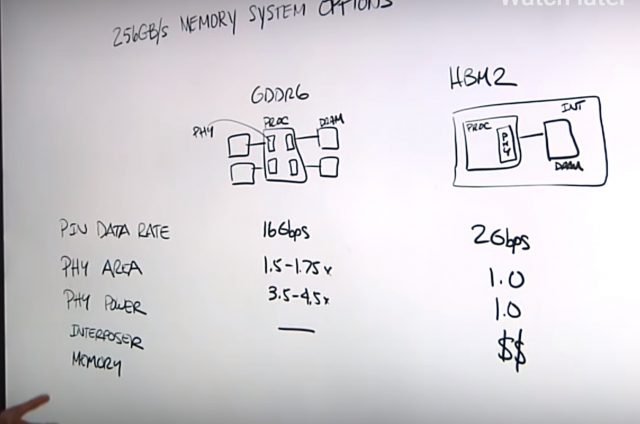 256GB/s MEMORY SYSTEM OPTIONS
Watch later
GDDR6
HBM2
PHY
PROC
DRAM
INT
PROC
PHY
DRAM
PIN DATA RATE 16Gbps 2Gbps
PHY AREA 1.5-1.75x 1.0
PHY POWER 3.5-4.5x 1.0
INTERPOSER — $$
MEMORY